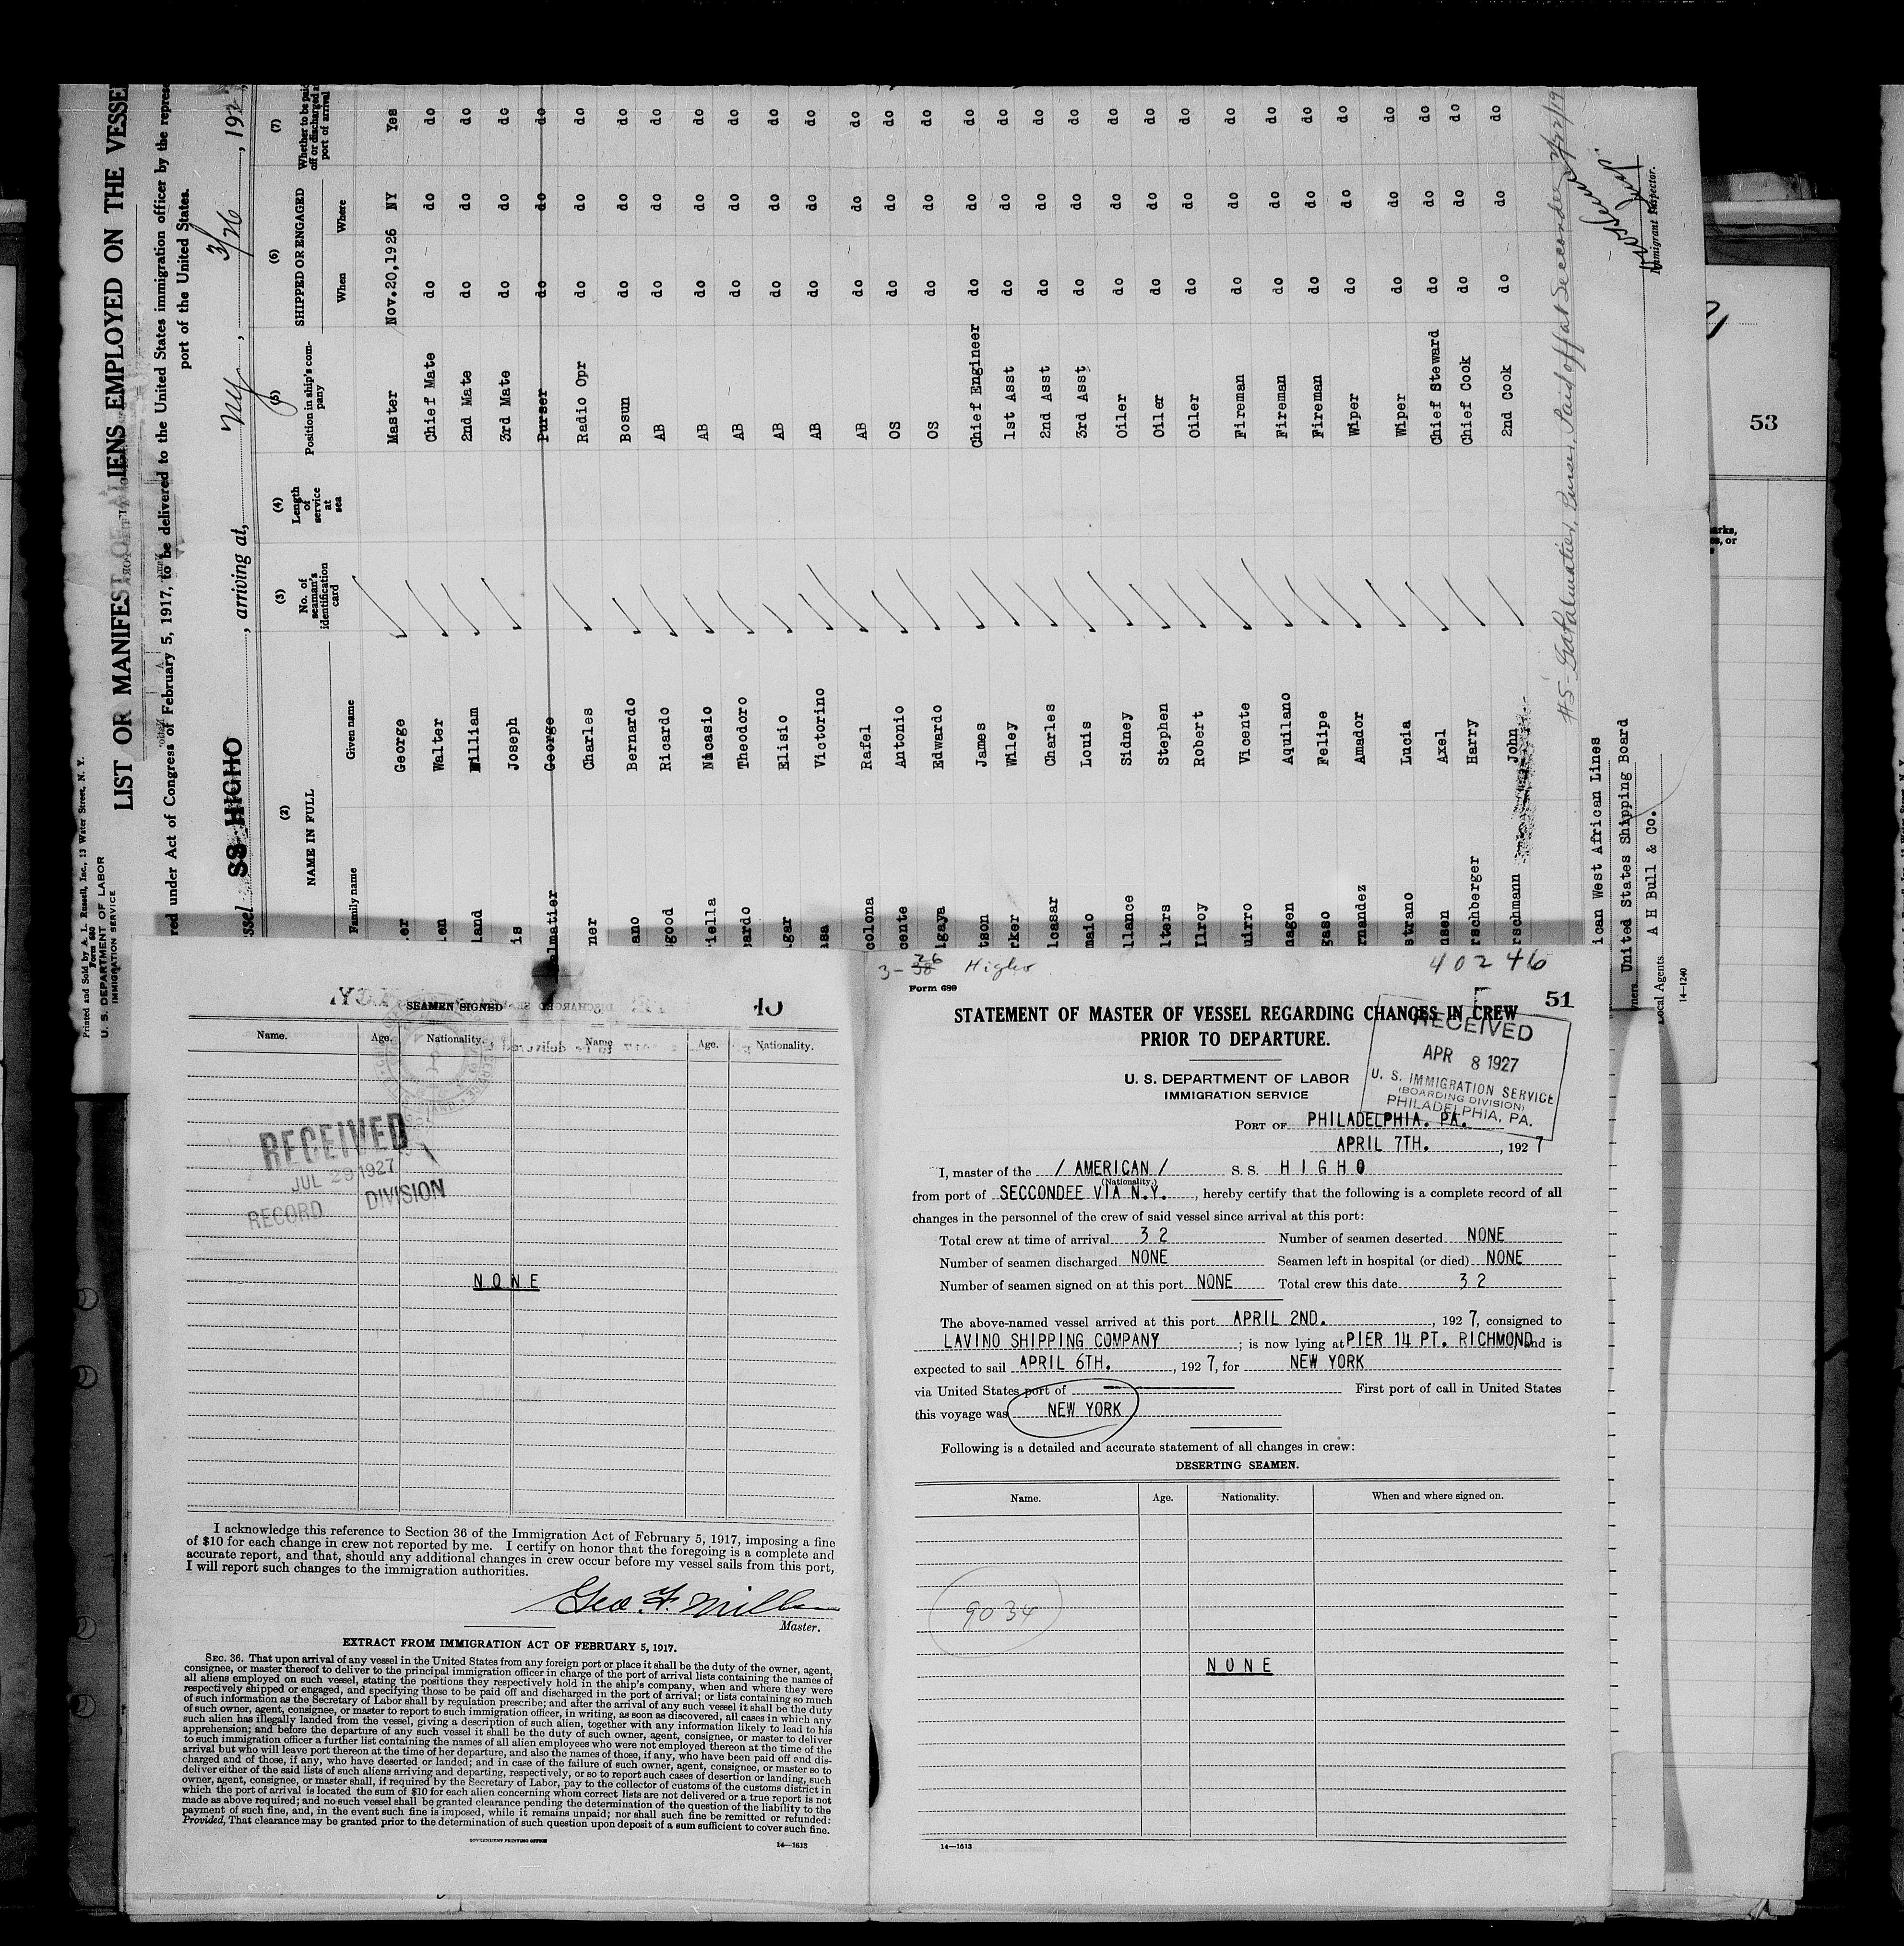 Printed and Sold by A. L. Russell, Inc., 13 Water Street, N. Y.
Form 680
U. S. DEPARTMENT OF LABOR
IMMIGRATION SERVICE
LIST OR MANIFEST OF ALIENS EMPLOYED ON THE VESSEL
red under Act of Congress of February 5, 1917, to be delivered to the United States immigration officer by the represe
port of the United States.
ssel SS HIGHO, arriving at, NY, 3/26, 192
(2) (3) (4) (5) (6) (7)
NAME IN FULL No. of seaman's identification card Length of service at sea Position in ship's company SHIPPED OR ENGAGED Whether to be paid off or discharged at port of arrival
Family name Given name When Where
er George Master Nov.20,1926 NY Yes
en Walter Chief Mate do do do
land William 2nd Mate do do do
is Joseph 3rd Mate do do do
almatier George Purser do do do
ner Charles Radio Opr do do do
ano Bernardo Bosun do do do
good Ricardo AB do do do
riella Nicasio AB do do do
ardo Theodoro AB do do do
gar Elisio AB do do do
asa Victorino AB do do do
colona Rafel AB do do do
cente Antonio OS do do do
lgaya Edwardo OS do do do
tson James Chief Engineer do do do
rker Wiley 1st Asst do do do
lcasar Charles 2nd Asst do do do
maio Louis 3rd Asst do do do
llance Sidney Oiler do do do
lters Stephen Oiler do do do
Ilroy Robert Oiler do do do
uirro Vicente Fireman do do do
nagen Aquilano Fireman do do do
gaso Felipe Fireman do do do
rnandez Amador Wiper do do do
strano Lucia Wiper do do do
nsen Axel Chief Steward do do do
rschberger Harry Chief Cook do do do
rschmann John 2nd Cook do do do
#5- Purser, Paid off at Seccondee
ican West African Lines
wners United States Shipping Board
Local Agents A H Bull & Co.
Immigrant Inspector.
14-1240
53
SEAMEN SIGNED
Name. Age. Nationality. Name. Age. Nationality.
RECEIVED
JUL 29 1927
RECORD DIVISION
NONE
I acknowledge this reference to Section 36 of the Immigration Act of February 5, 1917, imposing a fine
of $10 for each change in crew not reported by me. I certify on honor that the foregoing is a complete and
accurate report, and that, should any additional changes in crew occur before my vessel sails from this port,
I will report such changes to the immigration authorities.
Geo. F. Miller
Master.
EXTRACT FROM IMMIGRATION ACT OF FEBRUARY 5, 1917.
SEC. 36. That upon arrival of any vessel in the United States from any foreign port or place it shall be the duty of the owner, agent,
consignee, or master thereof to deliver to the principal immigration officer in charge of the port of arrival lists containing the names of
all aliens employed on such vessel, stating the positions they respectively hold in the ship's company, when and where they were
respectively shipped or engaged, and specifying those to be paid off and discharged in the port of arrival; or lists containing so much
of such information as the Secretary of Labor shall by regulation prescribe; and after the arrival of any such vessel it shall be the duty
of such owner, agent, consignee, or master to report to such immigration officer, in writing, as soon as discovered, all cases in which any
such alien has illegally landed from the vessel, giving a description of such alien, together with any information likely to lead to his
apprehension; and before the departure of any such vessel it shall be the duty of such owner, agent, consignee, or master to deliver
to such immigration officer a further list containing the names of all alien employees who were not employed thereon at the time of the
arrival but who will leave port thereon at the time of her departure, and also the names of those, if any, who have been paid off and dis-
charged and of those, if any, who have deserted or landed; and in case of the failure of such owner, agent, consignee, or master so to
deliver either of the said lists of such aliens arriving and departing, respectively, or so to report such cases of desertion or landing, such
owner, agent, consignee, or master shall, if required by the Secretary of Labor, pay to the collector of customs of the customs district in
which the port of arrival is located the sum of $10 for each alien concerning whom correct lists are not delivered or a true report is not
made as above required; and no such vessel shall be granted clearance pending the determination of the question of the liability to the
payment of such fine, and, in the event such fine is imposed, while it remains unpaid; nor shall such fine be remitted or refunded:
Provided, That clearance may be granted prior to the determination of such question upon deposit of a sum sufficient to cover such fine.
GOVERNMENT PRINTING OFFICE
14—1613
3-26 Higho 40246
Form 689
51
STATEMENT OF MASTER OF VESSEL REGARDING CHANGES IN CREW
PRIOR TO DEPARTURE.
RECEIVED
APR 8 1927
U. S. IMMIGRATION SERVICE
(BOARDING DIVISION)
PHILADELPHIA, PA.
U. S. DEPARTMENT OF LABOR
IMMIGRATION SERVICE
PORT OF PHILADELPHIA. PA.
APRIL 7TH., 1927
I, master of the / AMERICAN / S. S. HIGHO
(Nationality.)
from port of SECCONDEE VIA N.Y., hereby certify that the following is a complete record of all
changes in the personnel of the crew of said vessel since arrival at this port:
Total crew at time of arrival 32 Number of seamen deserted NONE
Number of seamen discharged NONE Seamen left in hospital (or died) NONE
Number of seamen signed on at this port NONE Total crew this date 32
The above-named vessel arrived at this port APRIL 2ND., 1927, consigned to
LAVINO SHIPPING COMPANY; is now lying at PIER 14 PT. RICHMOND, and is
expected to sail APRIL 6TH., 1927, for NEW YORK
via United States port of First port of call in United States
this voyage was NEW YORK
Following is a detailed and accurate statement of all changes in crew:
DESERTING SEAMEN.
Name. Age. Nationality. When and where signed on.
9034
NONE
14—1613